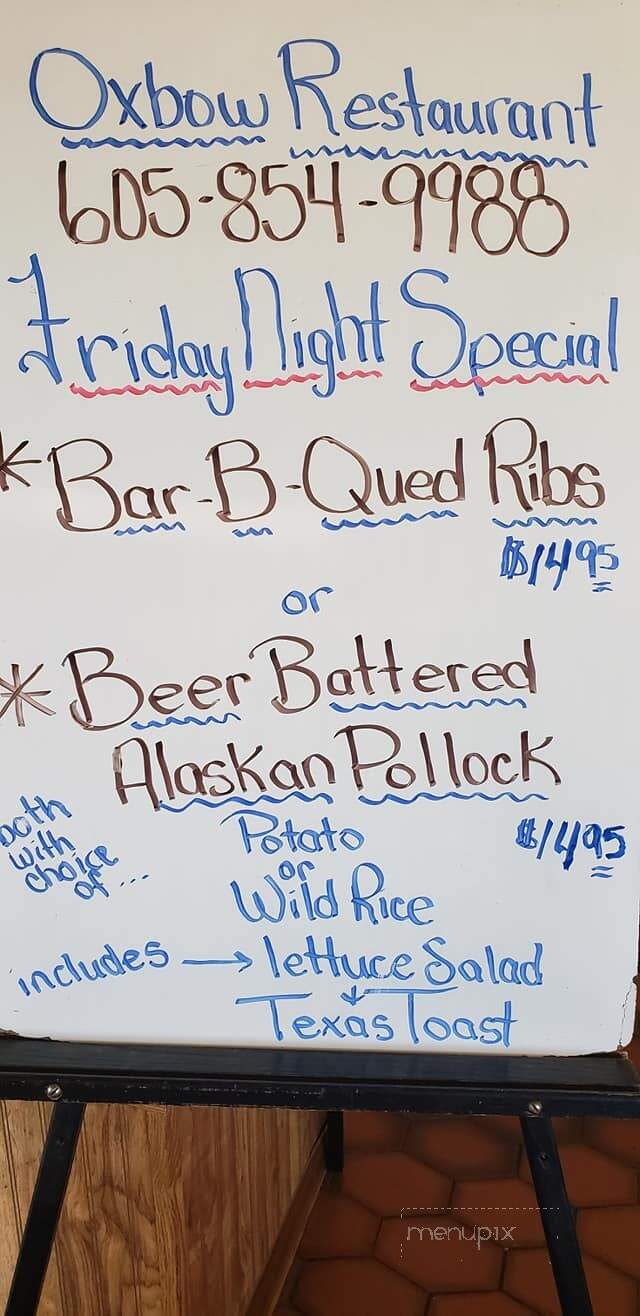 Oxbow Restaurant
605-854-9988
Friday Night Special
* Bar-B-Qued Ribs
$14.95
or
* Beer Battered
Alaskan Pollock
$14.95
both
with
choice
of ...
Potato
or
Wild Rice
includes → lettuce Salad
↓
Texas Toast
menupix